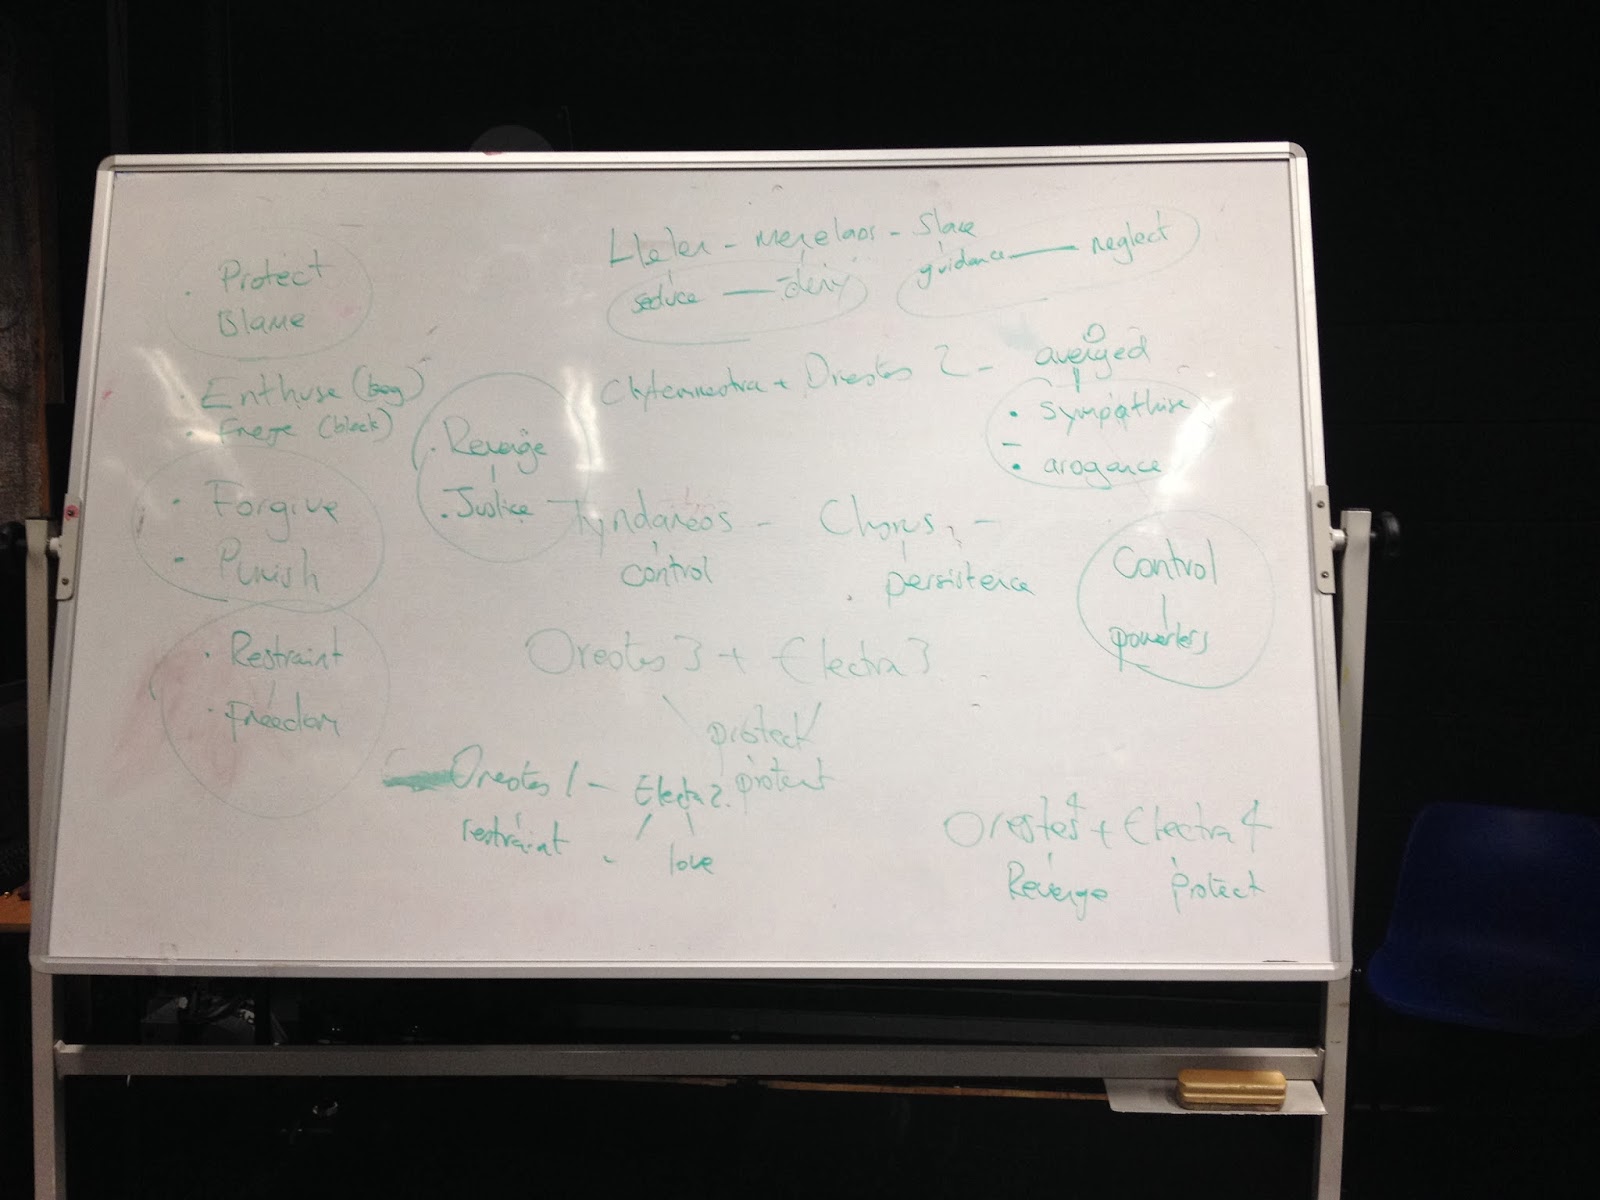 Protect
Blame
Enthuse (beg)
(block)
Forgive
Punish
Restraint
Freedom
Revenge
Justice
Helen - Menelaos - Slave
seduce — deny
guidance — neglect
Clytemnestra + Orestes 2 - avenged
sympathise
arogance
Tyndareos - Chorus -
control
persistence
Control
powerless
Orestes 3 + Electra 3
protect
Orestes 1 - Electra 2. protect
restraint - love
Orestes 4 + Electra 4
Revenge protect